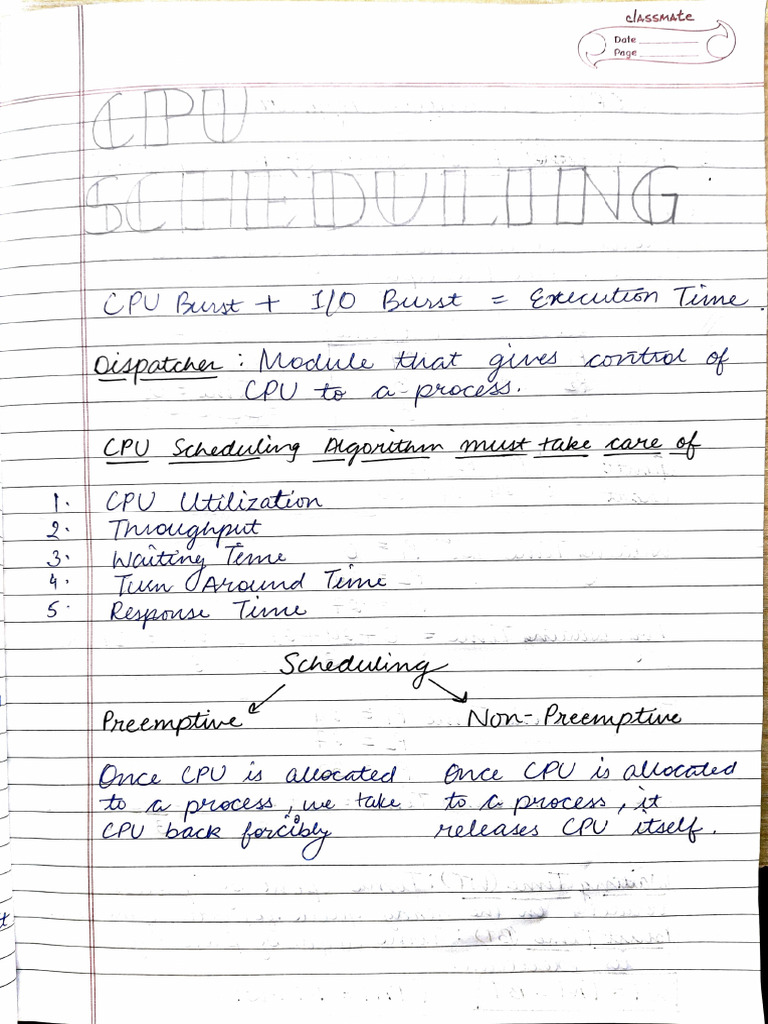 classmate
Date
Page
CPU
SCHEDULING
CPU Burst + I/O Burst = Execution Time.
Dispatcher : Module that gives control of
CPU to a process.
CPU Scheduling Algorithm must take care of
1. CPU Utilization
2. Throughput
3. Waiting Time
4. Turn Around Time
5. Response Time
Scheduling
Preemptive Non-Preemptive
Once CPU is allocated Once CPU is allocated
to a process, we take to a process, it
CPU back forcibly releases CPU itself.